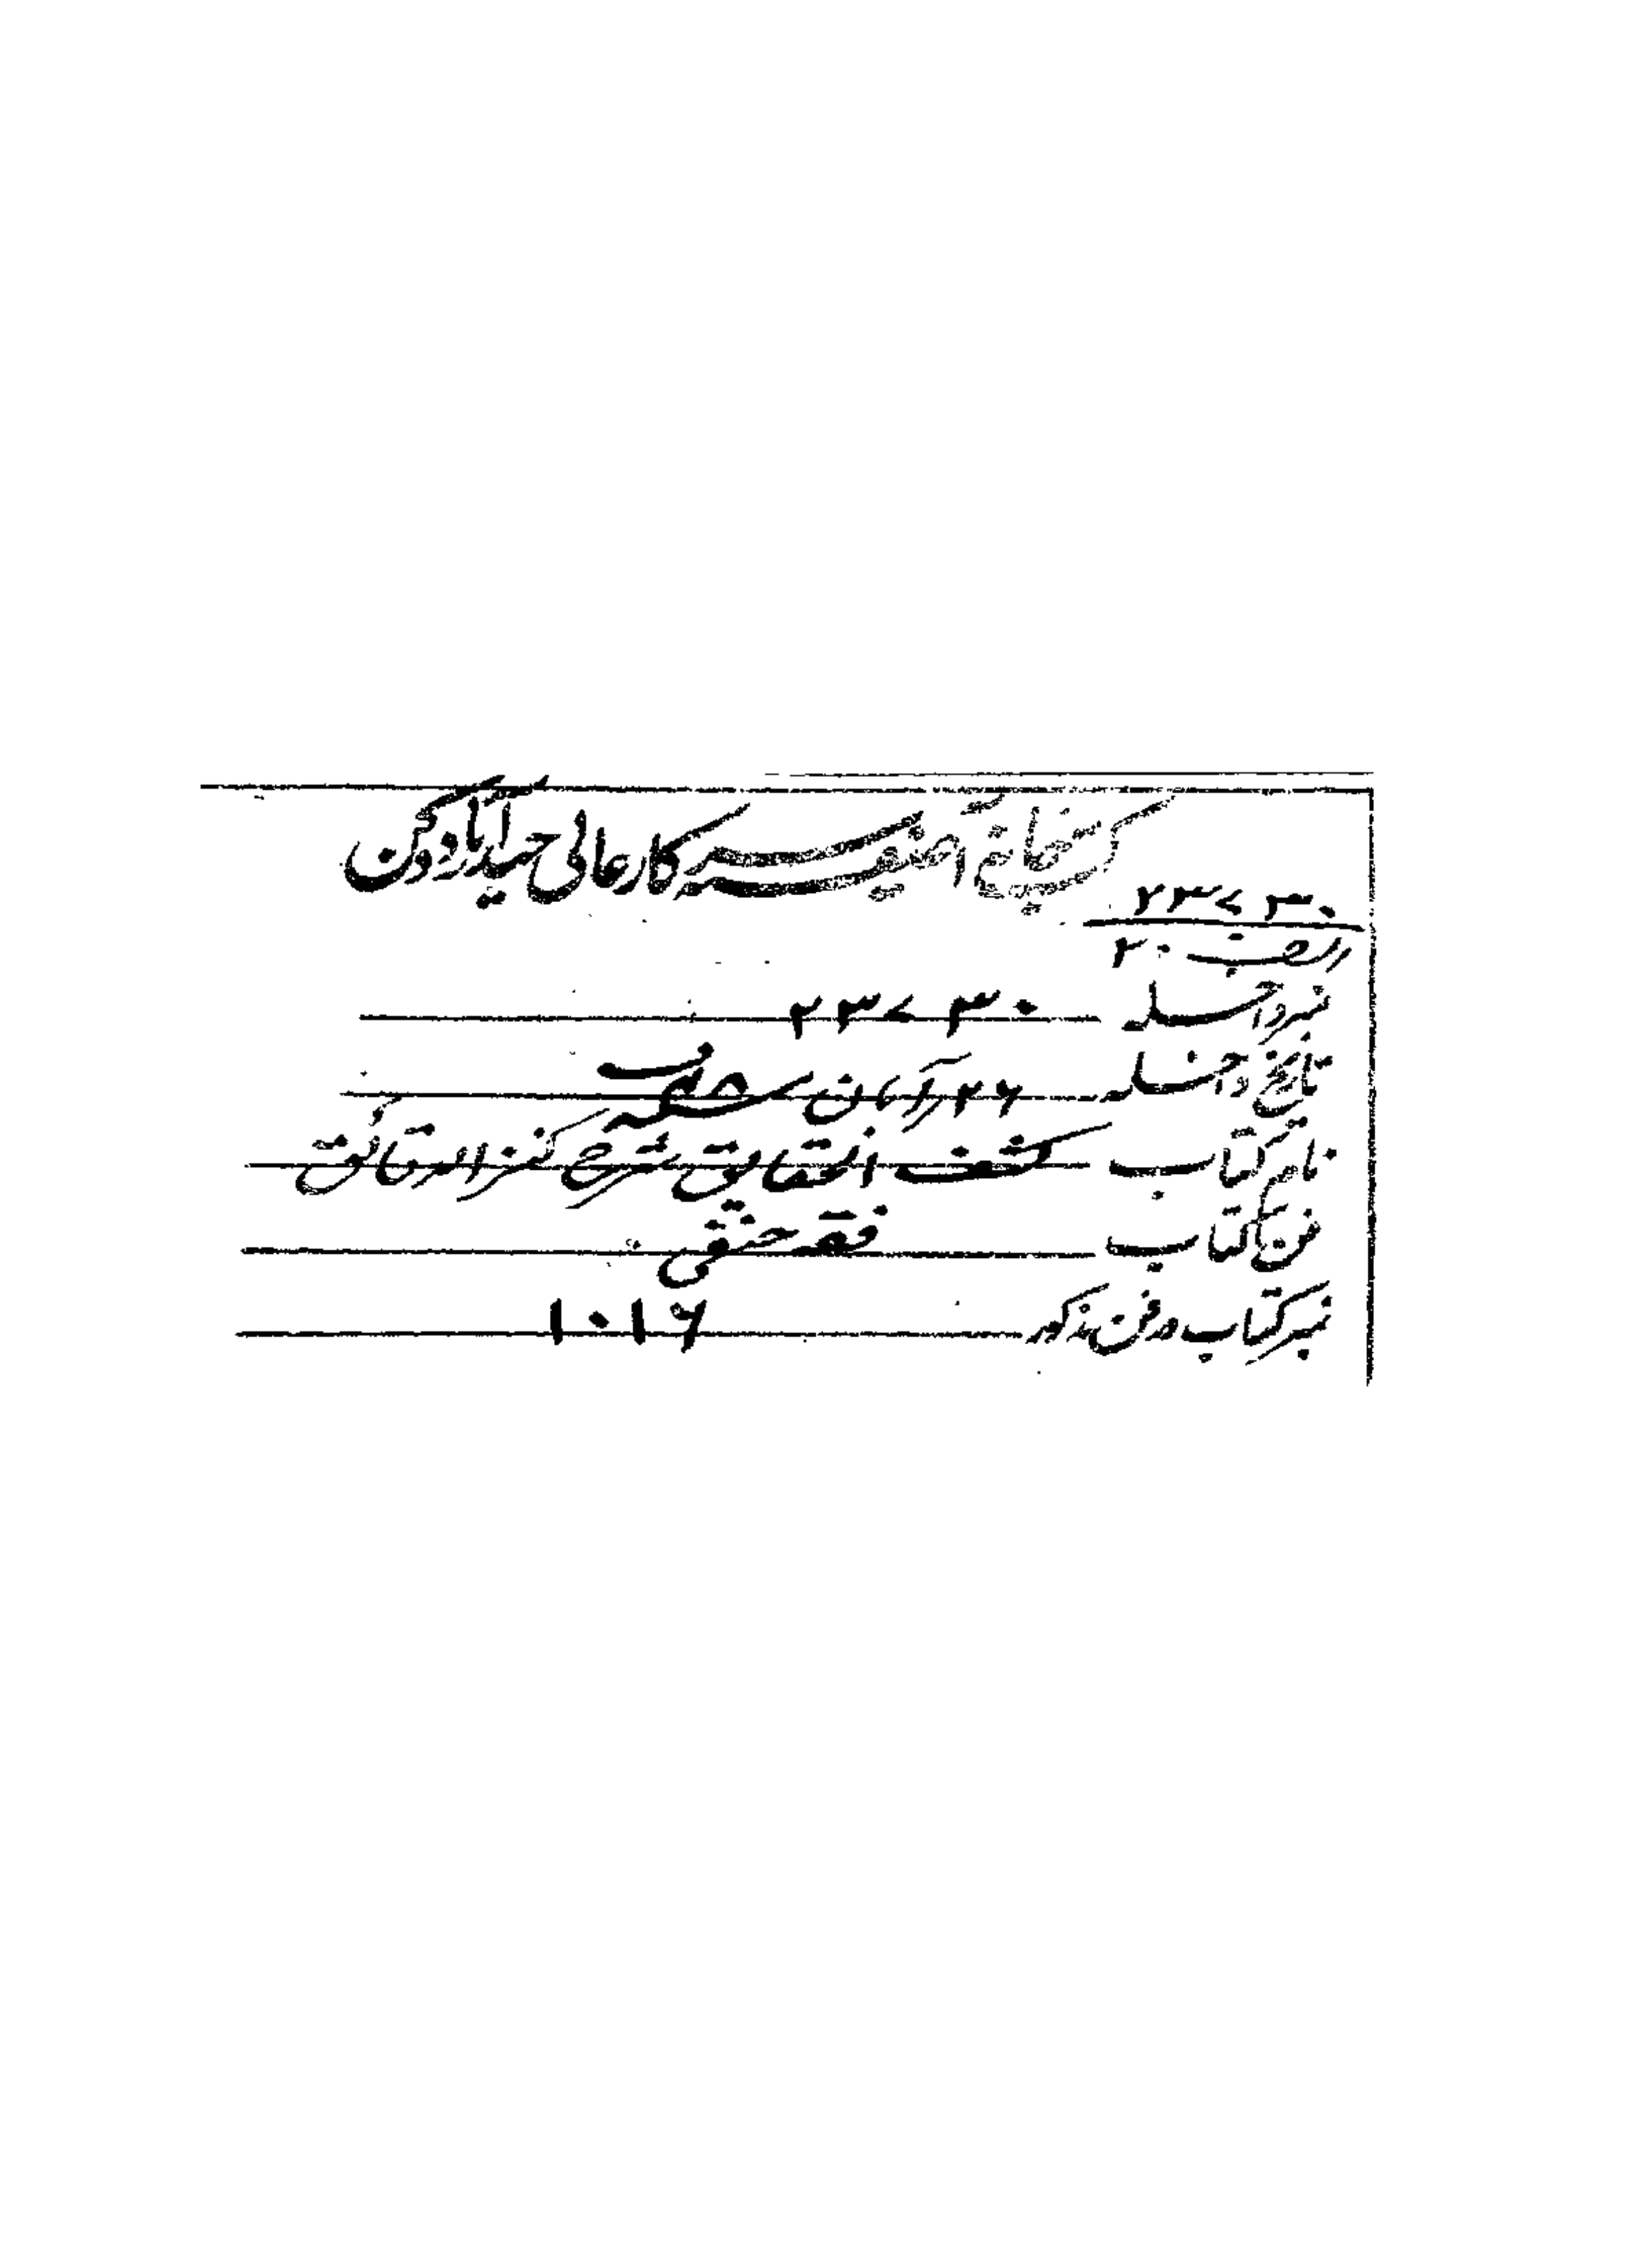 کتبخانہ آصفیہ سرکار عالی حیدرآباد دکن
۲۳۷۳۰
الف ۲۰
نمبر داخلہ ۲۳۷۳۰
تاریخ داخلہ ۲۶ر آبان
نام کتاب کشف الحقایق شرح کنز الدقائق
فن کتاب فقہ حنفی
نمبر کتاب در فن مذکور ۱۰۱۶